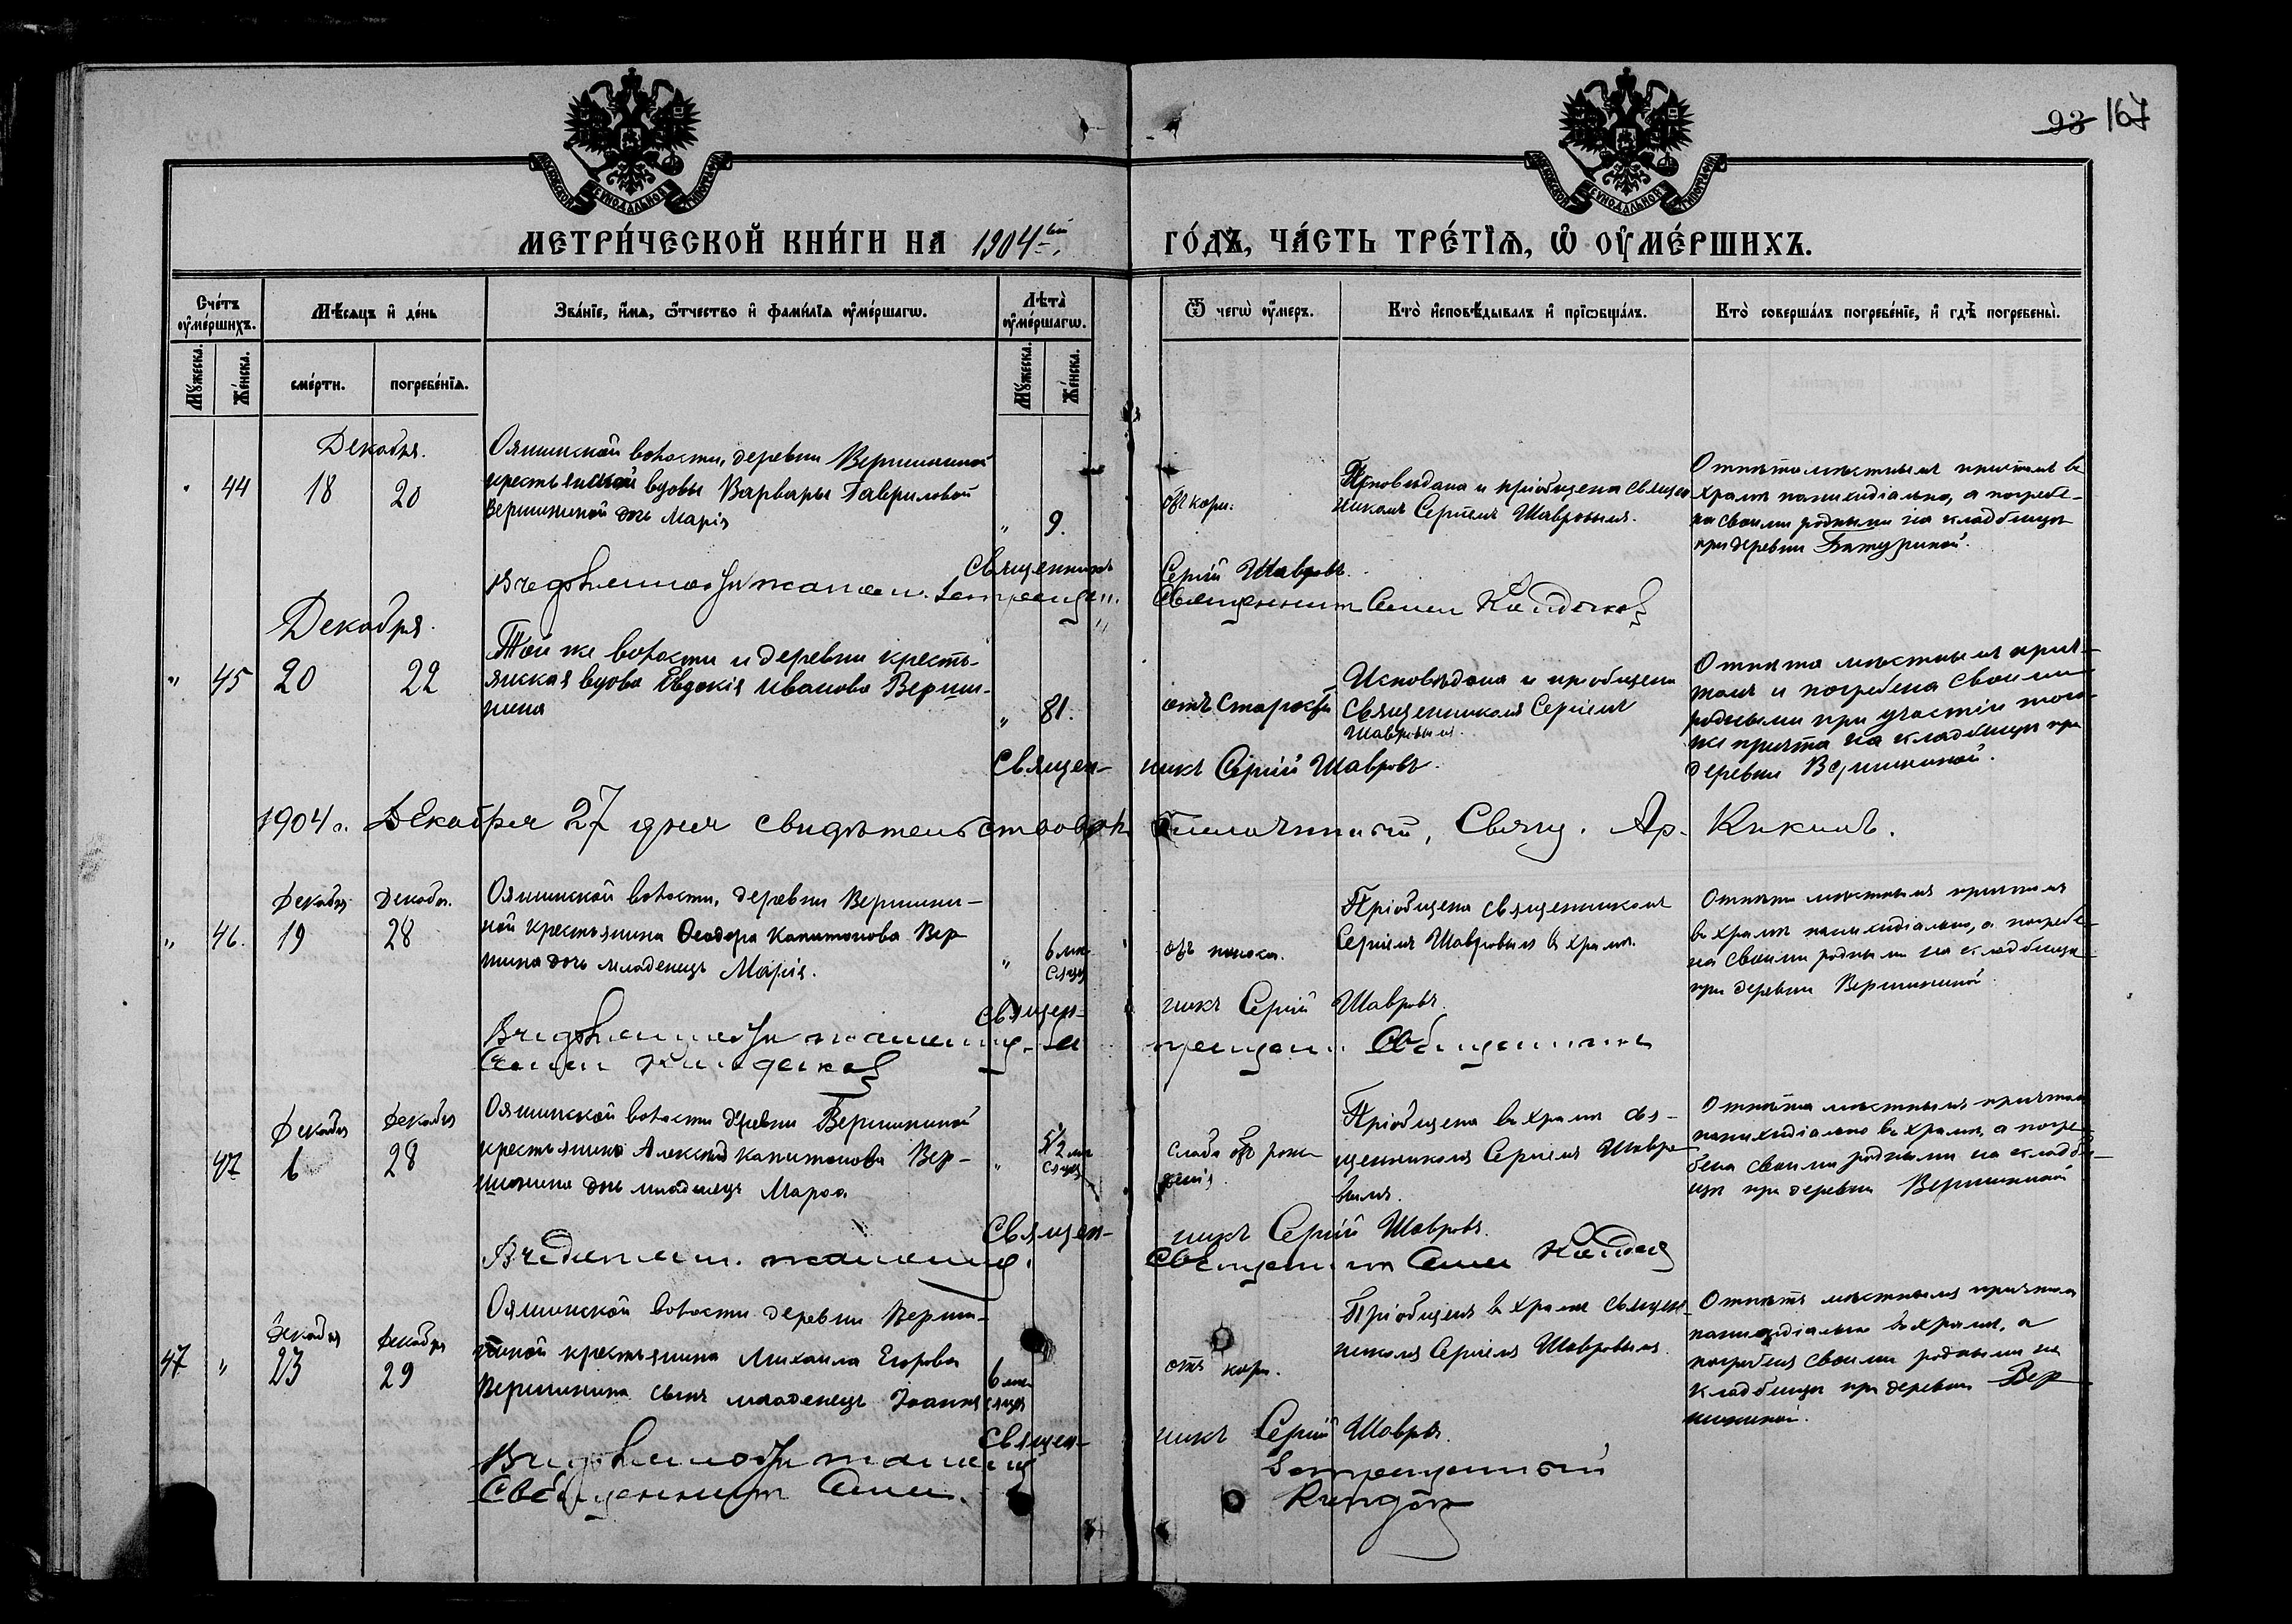 93 167
МЕТРИ́ЧЕСКОЙ КНИ́ГИ НА 1904-ый
ГО́ДЪ, ЧА́СТЬ ТРЕ́ТЇѦ, Ѡ ОУМЕ́РШИХЪ.
Сче́тъ оумершихъ.
Мѣсѧцъ и де́нь
Зва́нїе, и́мѧ, ѻтчество и фамилїѧ оумершагѡ.
Лѣта̀ оумершагѡ.
Ѿ чегѡ̀ оумеръ.
Кто̀ исповѣдывалъ и прїѡбща́лъ.
Кто̀ соверша́лъ погребе́нїе, и гдѣ погребены̀.
Мужеска.
Же́нска.
сме́рти.
погребе́нїѧ.
Мужеска.
Же́нска.
Декабря.
" 44 18 20
Ояшинской волости, деревни Вершининой
крестьянской вдовы Варвары Гавриловой
Вершининой дочь Марія
" 9.
отъ кори.
Исповѣдана и пріобщена священ
никомъ Сергіемъ Шавровымъ.
Отпѣта мѣстнымъ причтомъ въ
храмѣ панихидіально, а погребе-
на своими родными на кладбищѣ
при деревни Батуриной.
Священникъ
Сергій Шавровъ.
Священник
Декабря.
" 45 20 22
Той же волости и деревни кресть-
янская вдова Евдокія Иванова Верши-
нина
" 81.
отъ старости
Исповѣдана и пріобщена
священникомъ Сергіемъ
Шавровымъ.
Отпѣта мѣстнымъ прич-
томъ и погребена своими
родными при участіи того-
же причта на кладбищѣ при
деревни Вершининой.
Священ-
никъ Сергій Шавровъ.
1904 г. Декабря 27 дня свидѣтельствовалъ
Благочинный, Свящ. Ар. Кикинъ.
Декабря Декабря.
" 46. 19 28
Ояшинской волости, деревни Вершини-
ной крестьянина Ѳеодора Капитонова Вер
шина дочь младенецъ Марія.
" 6 мѣ-
сяцъ
отъ поноса.
Пріобщена священникомъ
Сергіемъ Шавровымъ въ храмѣ.
Отпѣта мѣстнымъ причтомъ
въ храмѣ панихидіально, а погребе-
на своими родными на кладбищѣ
при деревни Вершининой
Священ-
никъ Сергій Шавровъ.
Декабря Декабря
47 6 28
Ояшинской волости деревни Вершининой
крестьянина Капитонова Вер-
шинина дочь младенецъ Марѳа
" 5½ мѣ
сяцъ
слаба отъ рож-
денія.
Пріобщена въ храмѣ свя-
щенникомъ Сергіемъ Шавро-
вымъ.
Отпѣта мѣстнымъ причтомъ
панихидіально въ храмѣ, а погре-
бена своими родными на кладби-
щѣ при деревни Вершининой
Священ-
никъ Сергій Шавровъ.
Декабря Декабря
47 " 23 29
Ояшинской волости деревни Верши-
ниной крестьянина Михаила Егорова
Вершинина сынъ младенецъ Іоаннъ
6 мѣ-
сяцъ
отъ кори.
Пріобщенъ въ храмѣ священ-
никомъ Сергіемъ Шавровымъ.
Отпѣтъ мѣстнымъ причтомъ
панихидіально въ храмѣ, а
погребенъ своими родными на
кладбищѣ при деревни Вер
шининой.
Священ-
никъ Сергій Шавровъ.
Священник